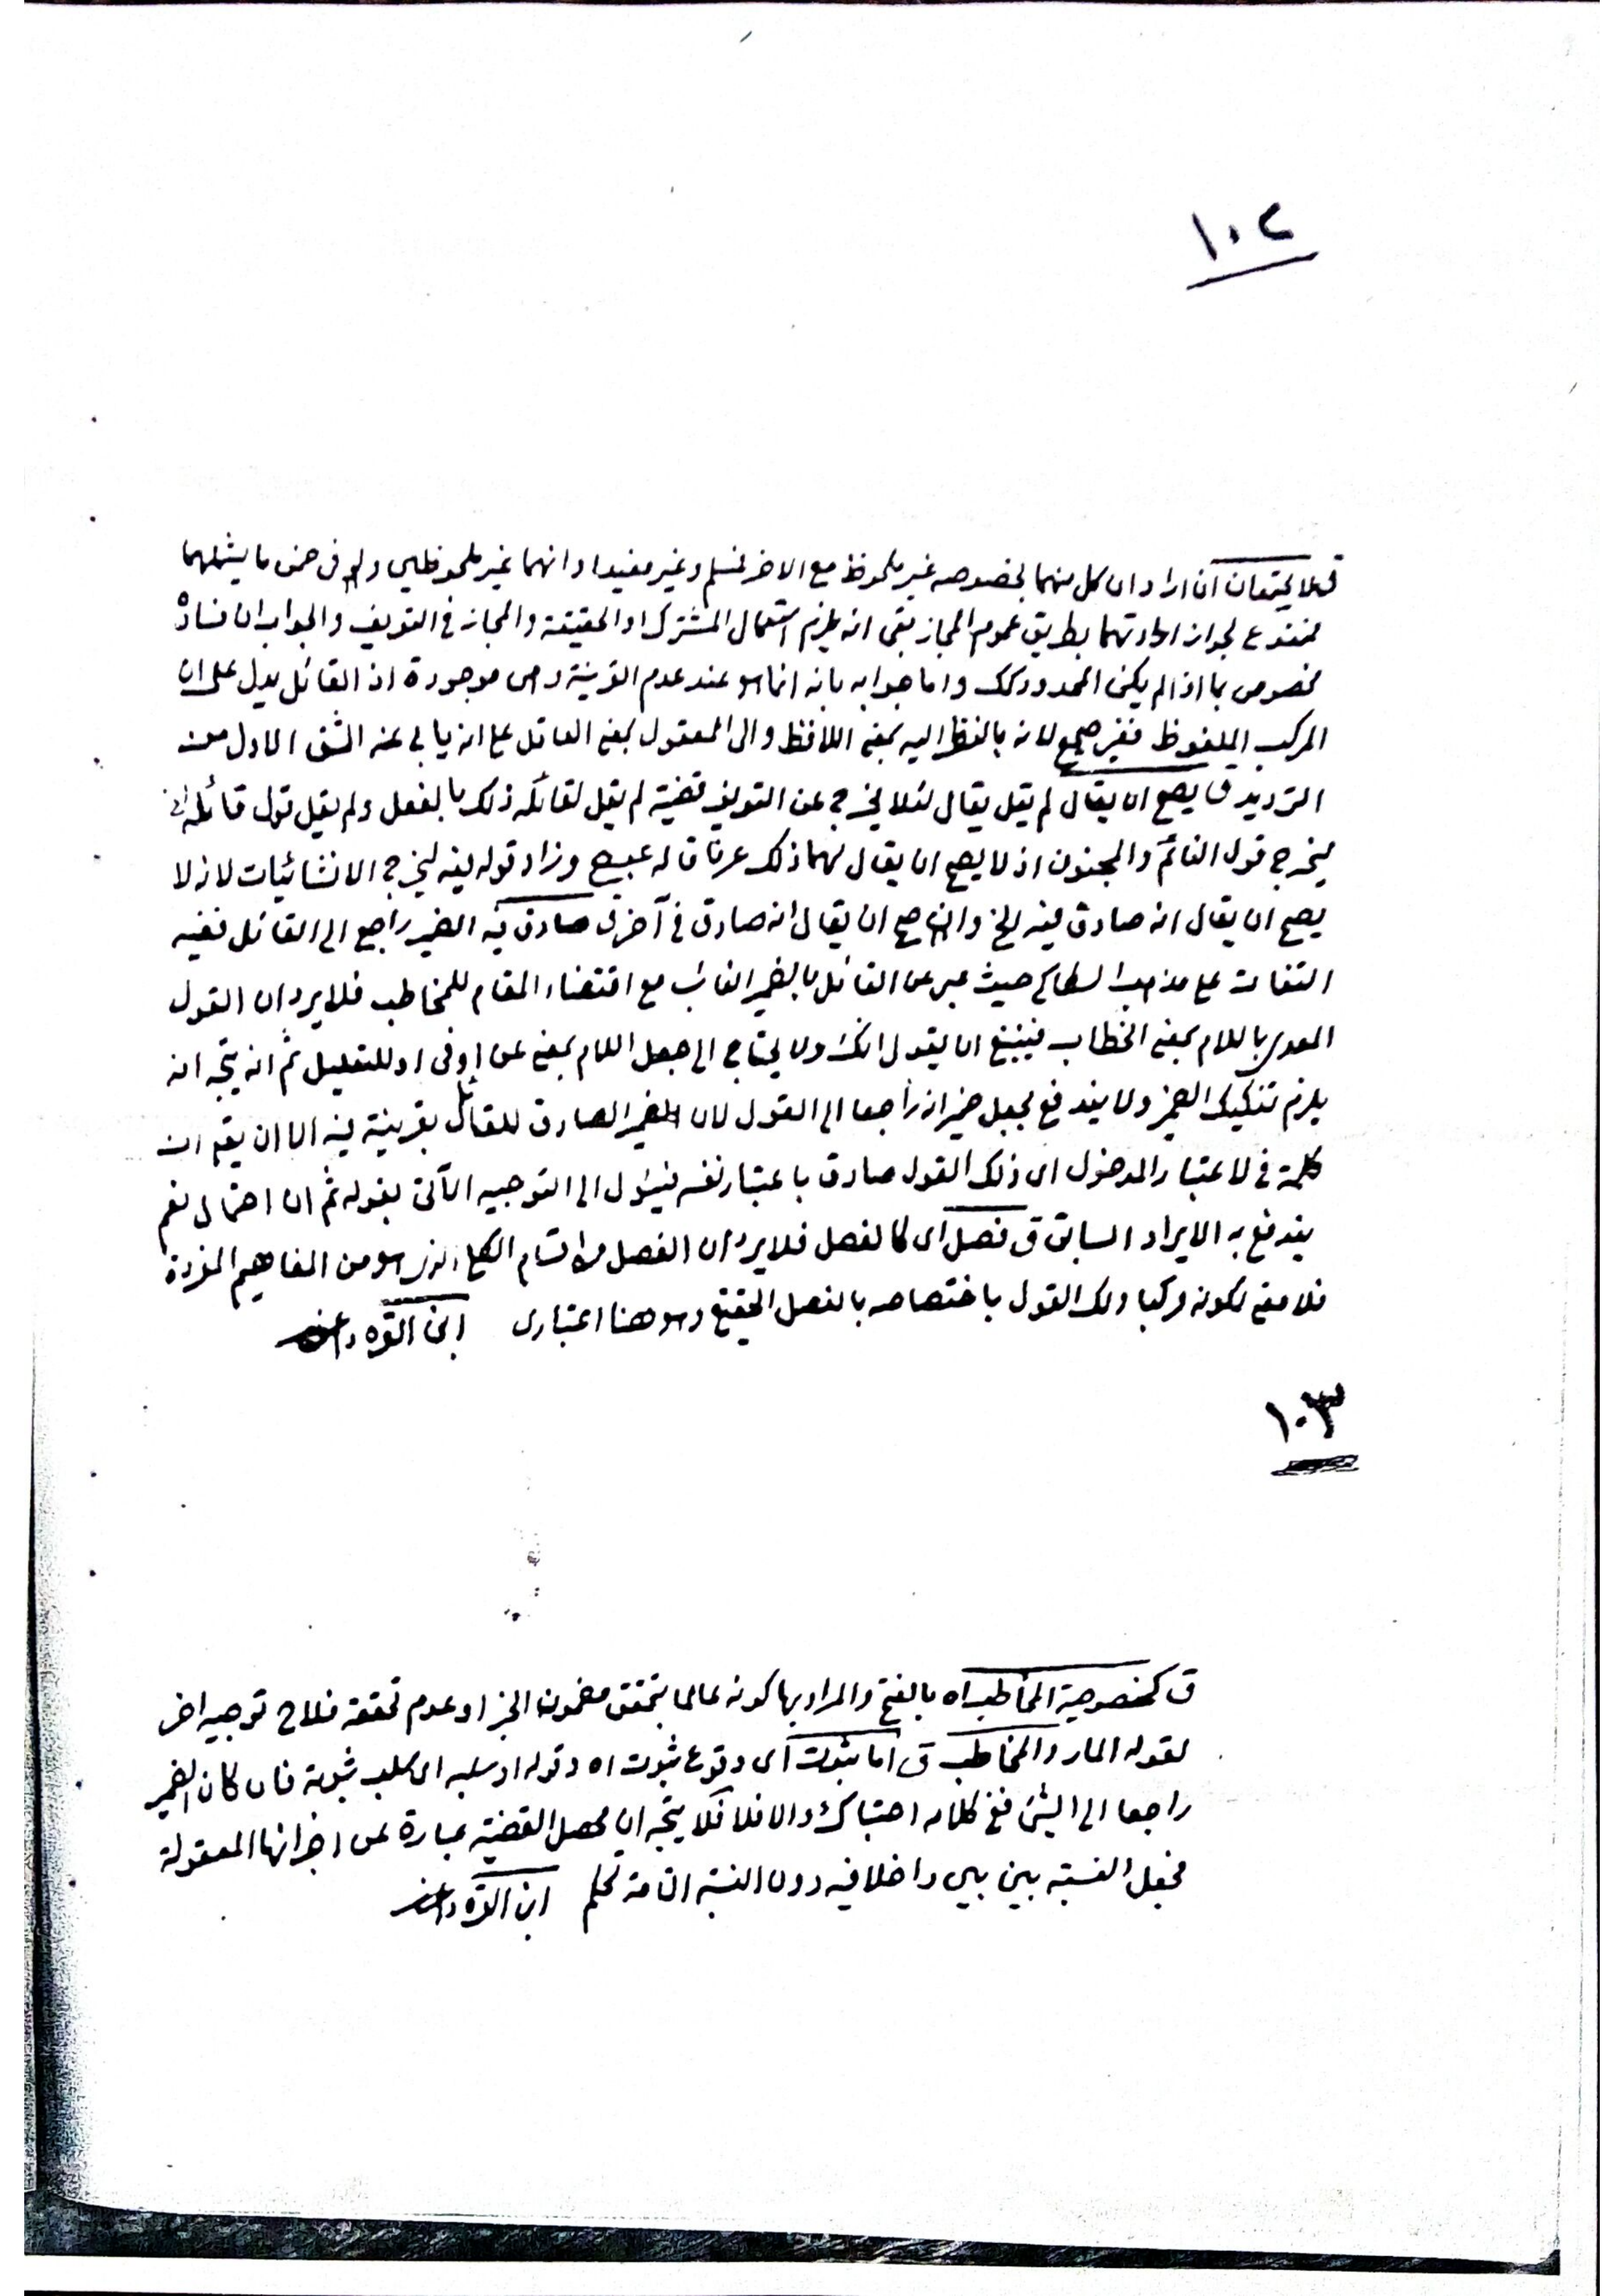 ١٠٢
ق لا يجتمعان ان اراد ان كل منهما بخصوصه غير ملحوظ مع الاخر فمسلم وغير مفيد او انهما غير ملحوظين ولو فى ضمن ما يشملهما
فممنوع لجواز ارادتهما بطريق عموم المجاز بقى انه يلزم استعمال المشترك او الحقيقة والمجاز فى التعريف والجواب ان فساده
مخصوص بما اذا لم يكن المحدود كك واما جوابه بانه انما هو عند عدم القرينة وهى موجودة اذ القائل يدل على ان
المركب الملفوظ فغير صحيح لانه بالنظر اليه بمعنى اللافظ والى المعقول بمعنى العاقل على انه يابى عنه الشق الاول من
الترديد ق يصح ان يقال لم يقل يقال لئلا يخرج عن التعريف قضية لم يقل لقائله ذلك بالفعل ولم يقل قول قائله
ليخرج قول النائم والمجنون اذ لا يصح ان يقال لهما ذلك عرفا قاله عبيد وزاد قوله فيه ليخرج الانشائيات لانه لا
يصح ان يقال انه صادق فيه الخ وان صح ان يقال انه صادق فى آخر ق صادق فيه الضمير راجع الى القائل ففيه
التفات على مذهب السكاكى حيث عبر عن القائل بالضمير الغائب مع اقتضاء المقام للمخاطب فلا يرد ان القول
المعدى باللام بمعنى الخطاب فينبغى ان يقول انك ولا يحتاج الى جعل اللام بمعنى عن او فى او للتعليل ثم انه يتجه انه
يلزم تفكيك الضمير ولا يندفع بجعل ضمير انه راجعا الى القول لان الضمير الصادق للقائل بقرينة فيه الا ان يقم ان
كلمة فى لاعتبار المدخول اى ذلك القول صادق باعتبار نفسه فيئول الى التوجيه الآتى بقوله ثم ان احتمال نعم
يندفع به الايراد السابق ق فصل اى كالفصل فلا يرد ان الفصل من اقسام الكلى الذى هو من المفاهيم المفردة
فلا معنى لكونه مركبا ولك القول باختصاصه بالفصل الحقيقى وهو هنا اعتبارى ابن القره داغى
١٠٣
ق كخصوصية المخاطب اه بالفتح والمراد بها كونه عالما بتحقق مضمون الخبر او عدم تحققه فلاح توجيه اخر
لقوله المار والمخاطب ق اما بثبوت اى وقوع ثبوت اه وقوله او سلبه اى سلب ثبوته فان كان الضمير
راجعا الى الشئ ففى كلامه احتباك والا فلا فلا يتجه ان محصل القضية عبارة عن اجزائها المعقولة
فجعل النسبة بين بين داخلا فيه دون النسبة التامة تحكم ابن القره داغى